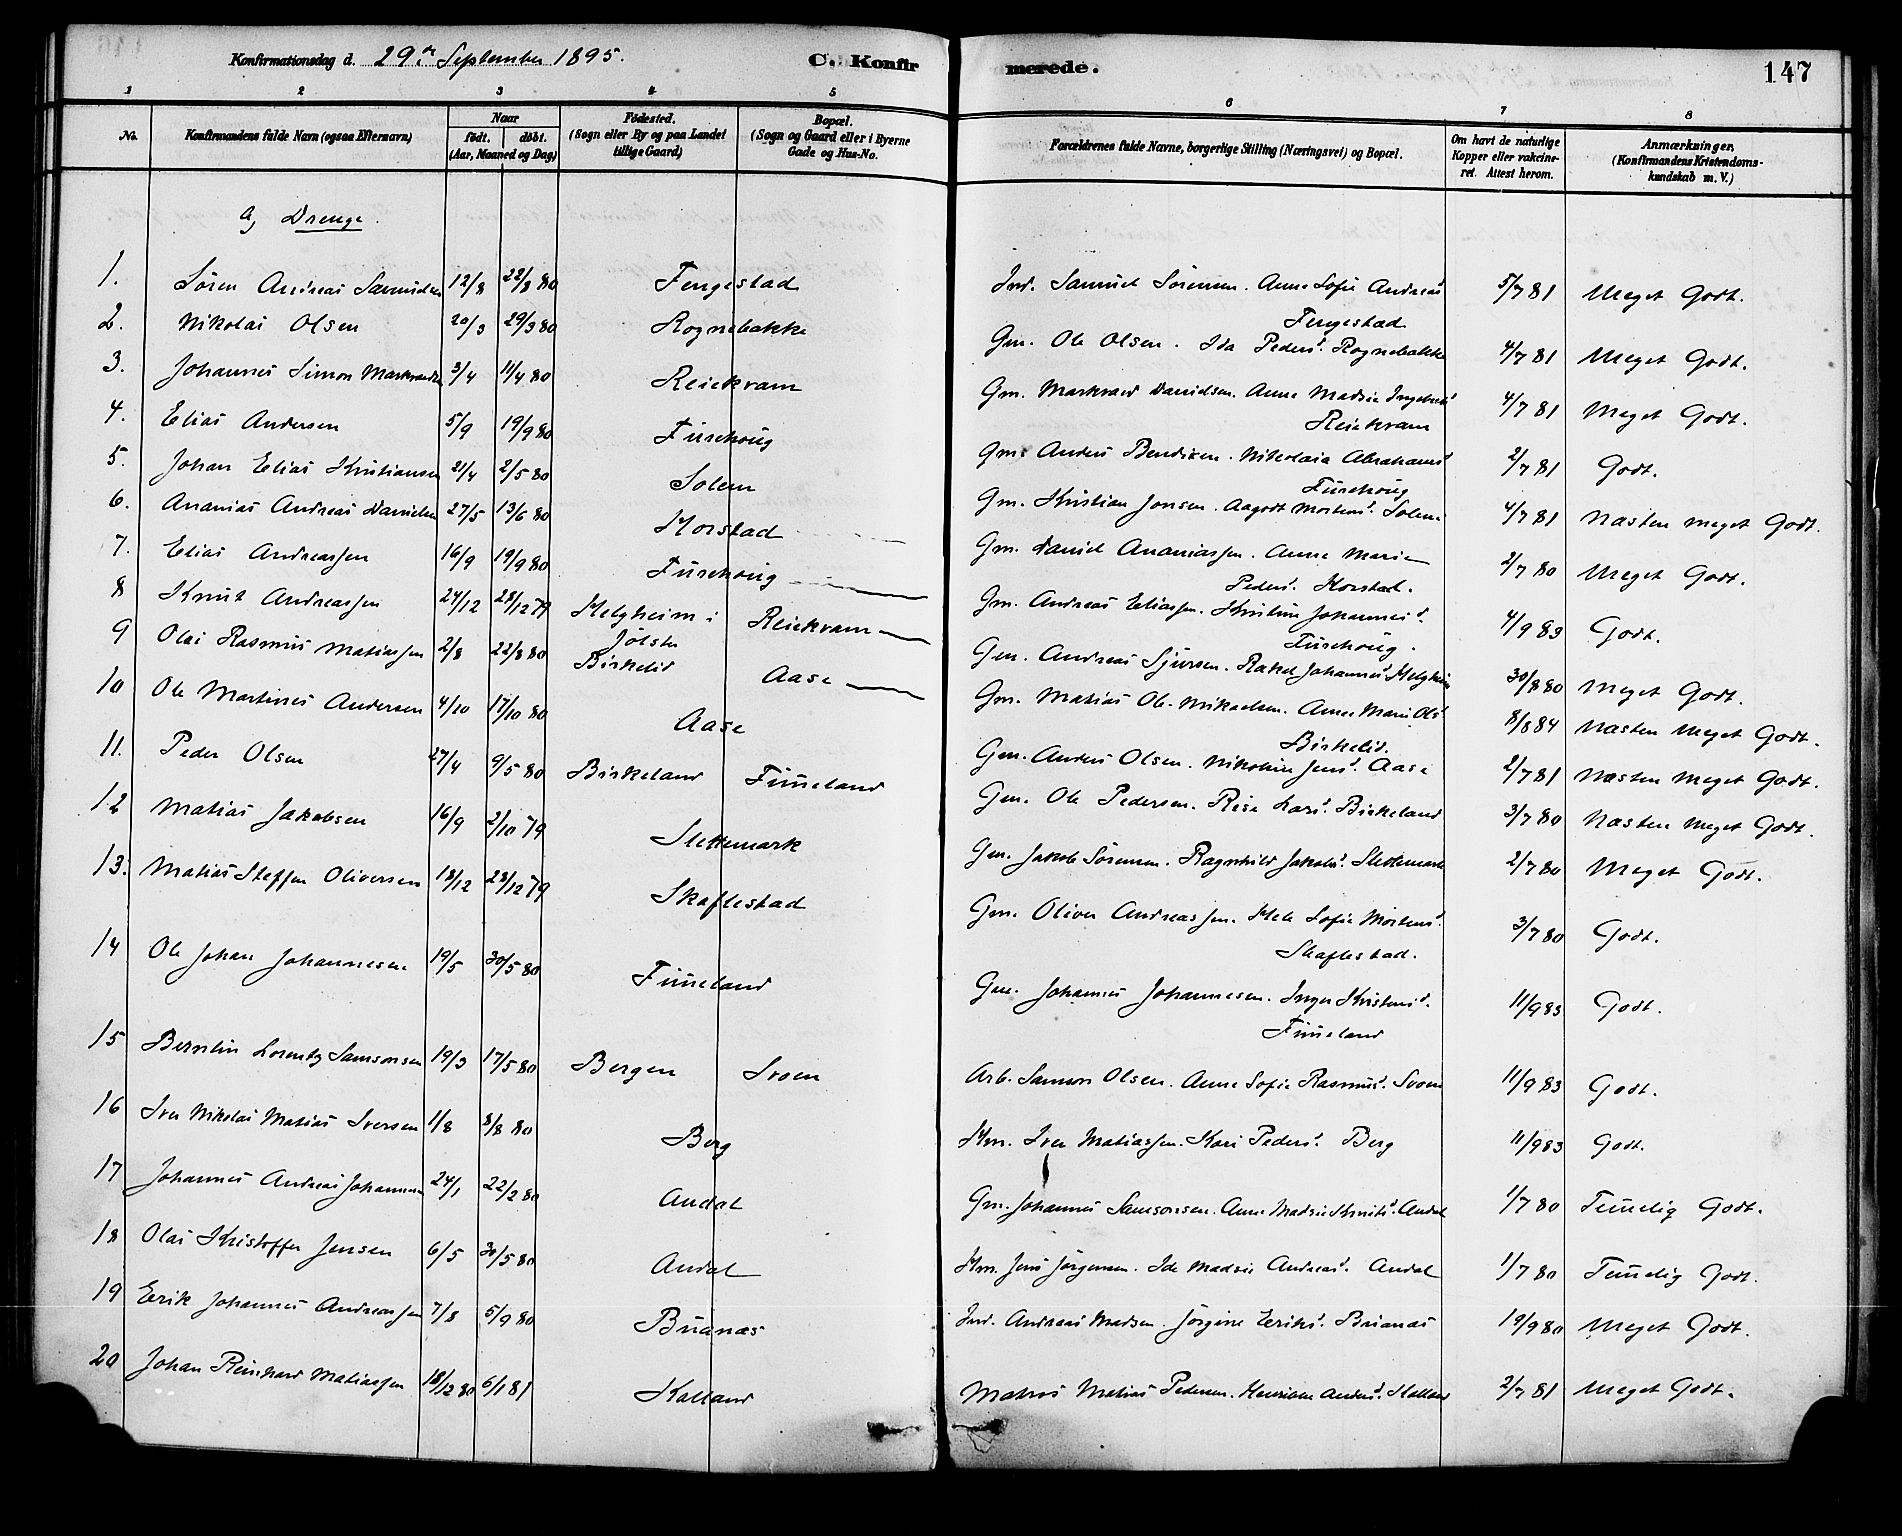 Konfirmationsdag d. 29de September 1895. C. Konfirmerede. 147
1 2 3 4 5 6 7 8
No. Konfirmandens fulde Navn (ogsaa Efternavn) Naar født. døbt. (Aar, Maaned og Dag) Fødested. (Sogn eller By og paa Landet tillige Gaard) Bopæl. (Sogn og Gaard eller i Byerne Gade og Hus-No. Forældrenes fulde Navne, borgerlige Stilling (Næringsvei) og Bopæl. Om havt de naturlige Kopper eller vakcineret. Attest herom. Anmærkninger, (Konfirmandens Kristendomskundskab m. V.)
a) Drenge.
1. Søren Andreas Samuelsen 12/8 22/8 80 Fengestad Ind. Samuel Sørensen. Anne Sofie Andreasd. Fengestad 5/7 81 Meget Godt.
2. Nikolai Olsen 20/3 29/3 80 Rognebakke Gm. Ole Olsen. Ida Pedersd. Rognebakke 4/7 81 Meget Godt.
3. Johannes Simon Markvardsen 3/4 11/4 80 Reiekvam Gm. Markvard Danielsen. Anne Madsie Ingebrd. Reiekvam 4/7 81 Meget Godt.
4. Elias Andersen 5/9 19/9 80 Furehoug Gm. Anders Bendixen. Nikolaia Abrahamsd. Furehoug 2/7 81 Godt.
5. Johan Elias Kristiansen 21/4 2/5 80 Solem Gm. Kristian Jonsen. Aagodt Mortensd. Solem 4/7 81 Næsten meget Godt.
6. Ananias Andreas Danielsen 27/5 13/6 80 Horstad Gm. Daniel Ananiassen. Anne Marie Pedersd. Horstad. 2/7 80 Meget Godt.
7. Elias Andreassen 16/9 19/9 80 Furehoug Gm. Andreas Eliassen. Kristine Johannesd. Furehoug. 4/9 83 Godt.
8 Knut Andreassen 24/12 28/12 79 Helgheim i Jølster Reiekvam Gm. Andreas Sjursen. Rakel Johannesd. Helgheim 30/8 80 Meget Godt.
9 Olai Rasmus Matiassen 2/8 22/8 80 Birkelid Aase Gm. Matias Ol. Mikaelsen. Anne Marie Olsd. Birkelid. 8/8 84 Næsten Meget Godt.
10 Ole Martinus Andersen 4/10 17/10 80 Aase Gm. Anders Olsen. Nikoline Jensd. Aase 2/7 81 Næsten Meget Godt.
11. Peder Olsen 27/4 9/5 80 Birkeland Fimeland Gm. Ole Pedersen. Rise Larsd. Birkeland 3/7 80 Næsten Meget Godt.
12 Matias Jakobsen 16/9 2/10 79 Slettemark Gm. Jakob Sørensen. Ragnhild Jakobsd. Slettemark 2/7 80 Meget Godt.
13. Matias Steffen Oliversen 18/12 28/12 79 Skaflestad Gm. Oliver Andreassen. Mele Sofie Mortensd. Skaflestad. 3/7 80 Godt.
14 Ole Johan Johannesen 19/5 30/5 80 Fimeland Gm. Johannes Johannesen. Inger Kristensd. Fimeland 11/9 83 Godt.
15 Berntin Lorentz Samsonsen 19/3 17/5 80 Bergen Svoen Arb. Samson Olsen. Anne Sofie Rasmusd. Svoen 11/9 83 Godt.
16 Iver Nikolai Matias Iversen 1/8 8/8 80 Berg Hm. Iver Matiassen. Kari Pedersd. Berg 11/9 83 Godt.
17 Johannes Andreas Johannesen 24/1 22/2 80 Andal Gm. Johannes Samsonsen. Anne Madsie Knutsd. Andal 1/7 80 Temmelig Godt.
18 Olai Kristoffer Jensen 6/5 30/5 80 Andal Hm. Jens Jørgensen. Ide Madsie Andreasd. Andal 1/7 80 Temmelig Godt.
19 Eerik Johannes Andreassen 7/8 5/9 80 Buanæs Ind. Andreas Madsen. Jørgine Eeriksd. Buanæs 19/9 80 Meget Godt.
20 Johan Reinhard Matiassen 18/12 80 6/1 81 Kalland Matros Matias Pedersen. Henrikke Andersd. Kalland 2/7 81 Meget Godt.